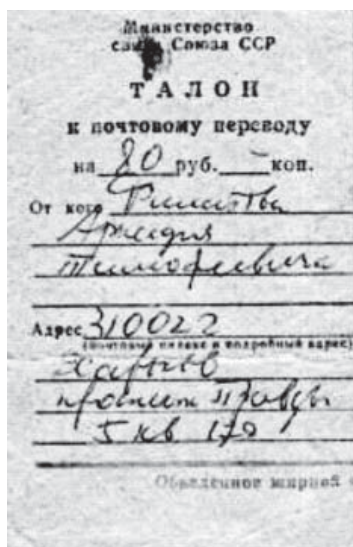 Министерство
связи Союза ССР
ТАЛОН
к почтовому переводу
на 80 руб. — коп.
От кого
Аркадия
Тимофеевича
Адрес 310022
(почтовый индекс и подробный адрес)
Харьков
проспект Правды
5 кв 170
Обведенное жирной